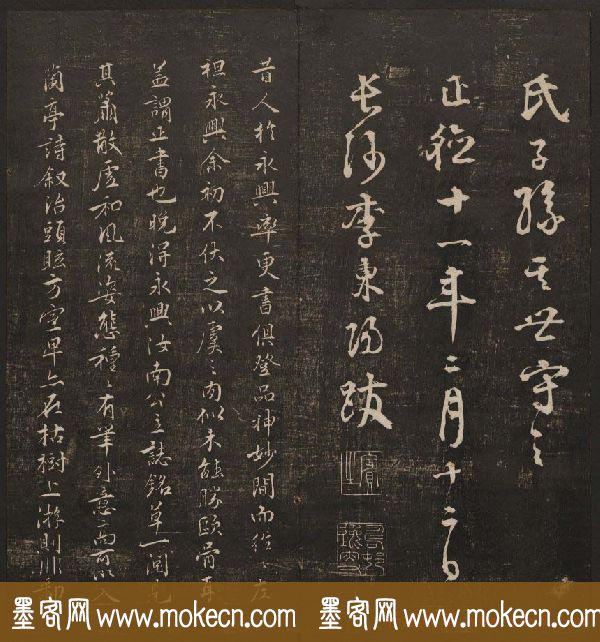 氏子孫其世守之
正德十一年二月十二日
長沙李東陽跋
昔人於永興率更書俱登品神妙間而往々左
袒永興余初不伏之以虞々內似未能勝歐骨耳
蓋謂正書也晚得永興汝南公主誌銘草一閱見
其蕭散虛和風流姿態種々有筆外意高可以入
蘭亭詩敘治頭眩方空卑亦在枯樹上游則非
墨客网 www.mokecn.com 墨客网 www.mokecn.com